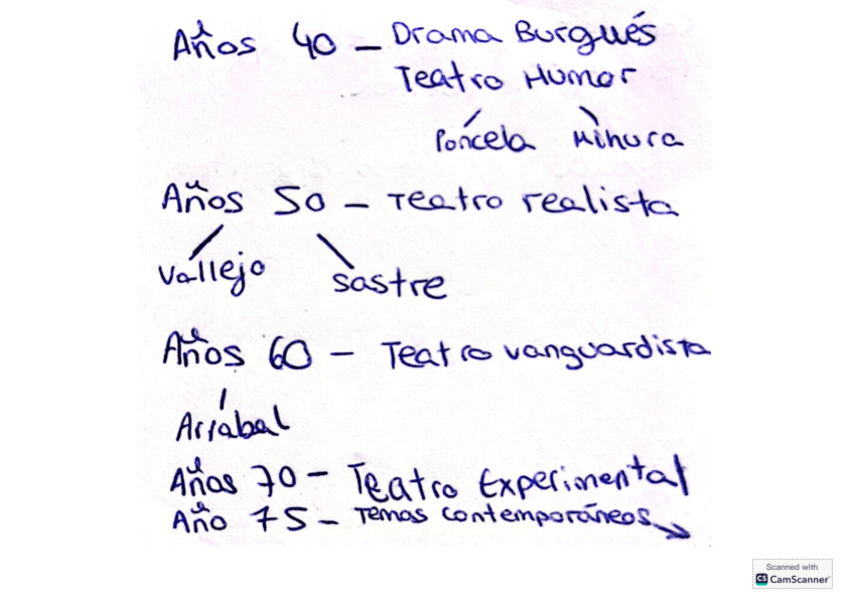 Años 40 - Drama Burgués
Teatro Humor
Poncela Mihura
Años 50 - Teatro realista
Vallejo Sastre
Años 60 - Teatro vanguardista
Arrabal
Años 70 - Teatro Experimental
Año 75 - Temas contemporáneos
Scanned with
CS CamScanner